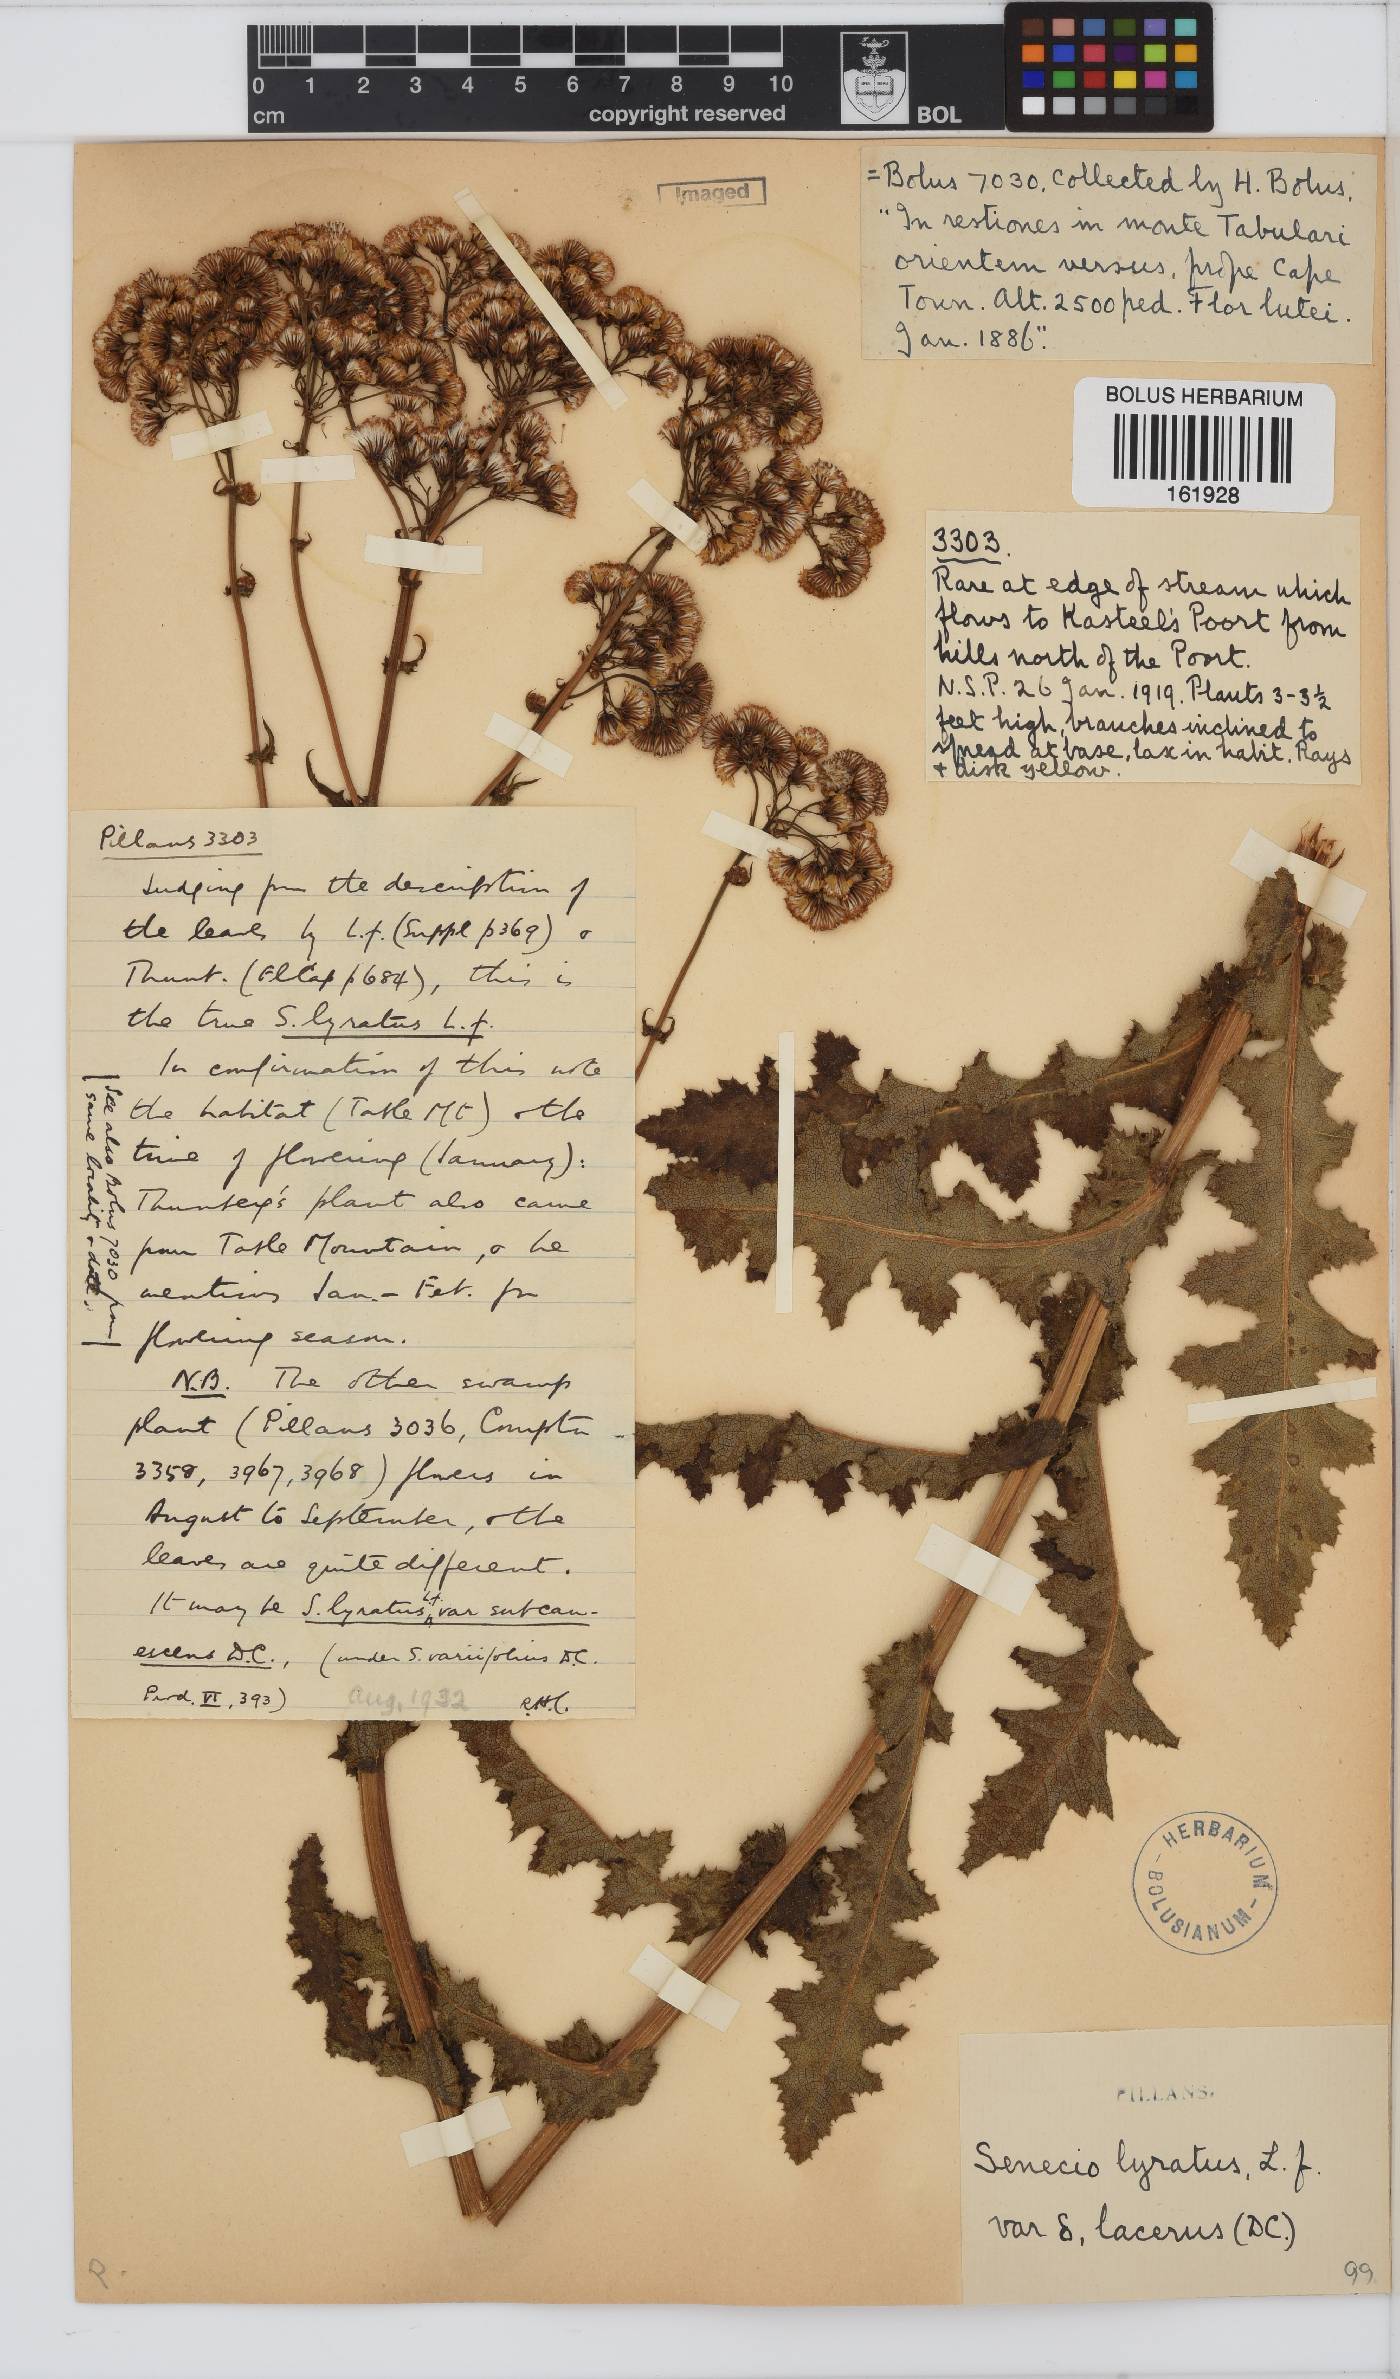 0 1 2 3 4 5 6 7 8 9 10
cm
copyright reserved
BOL
Imaged
=Bolus 7030. Collected by H. Bolus.
"In restiones in monte Tabulari
orientem versus, prope Cape
Town. Alt. 2500 ped. Flor lutei.
Jan. 1886".
BOLUS HERBARIUM
161928
3303.
Rare at edge of stream which
flows to Kasteel's Poort from
hills north of the Poort.
N.S.P. 26 Jan. 1919. Plants 3-3½
feet high, branches inclined to
spread at base, lax in habit. Rays
+ disk yellow.
Pillans 3303
Judging from the description of
the leaves by L.f. (Suppl p369) &
Thunb. (Fl Cap p684), this is
the true S. lyratus L.f.
In confirmation of this note
the habitat (Table Mt) & the
time of flowering (January):
Thunberg's plant also came
from Table Mountain, & he
mentions Jan. - Feb. for
flowering season.
See also Bolus 7030 from
same locality & date.
N.B. The other swamp
plant (Pillans 3036, Compton
3358, 3967, 3968) flowers in
August to September, & the
leaves are quite different.
It may be S. lyratus L.f. var subcan-
escens D.C., (under S. variifolius D.C.
Prod. VI, 393)
Aug. 1932
R.H.C.
HERBARIUM
- BOLUSIANUM -
PILLANS.
Senecio lyratus, L. f.
var δ, lacerus (DC.)
99